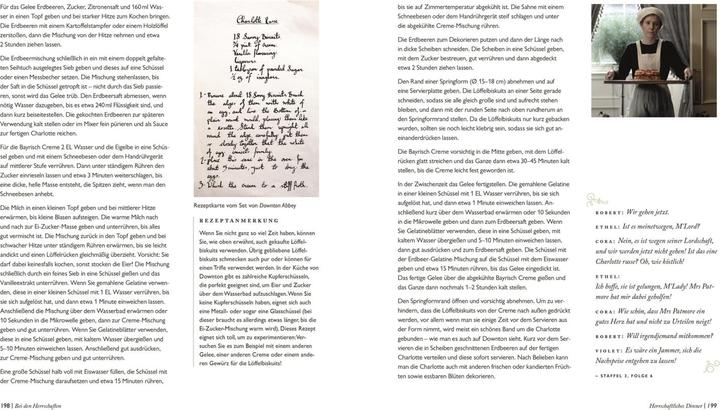 Für das Gelee Erdbeeren, Zucker, Zitronensaft und 160 ml Was-
ser in einen Topf geben und bei starker Hitze zum Kochen bringen.
Die Erdbeeren mit einem Kartoffelstampfer oder einem Holzlöffel
zerstoßen, dann die Mischung von der Hitze nehmen und etwa
2 Stunden ziehen lassen.
Die Erdbeermischung schließlich in ein mit einem doppelt gefalte-
ten Seihtuch ausgelegtes Sieb geben und dieses auf eine Schüssel
oder einen Messbecher setzen. Die Mischung stehenlassen, bis
der Saft in die Schüssel getropft ist – nicht durch das Sieb passie-
ren, sonst wird das Gelee trüb. Den Erdbeersaft abmessen, wenn
nötig Wasser dazugeben, bis es etwa 240 ml Flüssigkeit sind, und
dann kurz beiseitestellen. Die gekochten Erdbeeren zur späteren
Verwendung kalt stellen oder im Mixer fein pürieren und als Sauce
zur fertigen Charlotte reichen.
Für die Bayrisch Creme 2 EL Wasser und die Eigelbe in eine Schüs-
sel geben und mit einem Schneebesen oder dem Handrührgerät
auf mittlerer Stufe verrühren. Dann unter ständigem Rühren den
Zucker einrieseln lassen und etwa 3 Minuten weiterschlagen, bis
eine dicke, helle Masse entsteht, die Spitzen zieht, wenn man den
Schneebesen anhebt.
Die Milch in einen kleinen Topf geben und bei mittlerer Hitze
erwärmen, bis kleine Blasen aufsteigen. Die warme Milch nach
und nach zur Ei-Zucker-Masse geben und unterrühren, bis alles
gut vermischt ist. Die Mischung zurück in den Topf geben und bei
schwacher Hitze unter ständigem Rühren erwärmen, bis sie leicht
andickt und einen Löffelrücken gleichmäßig überzieht. Vorsicht: Sie
darf dabei keinesfalls kochen, sonst stocken die Eier! Die Mischung
schließlich durch ein feines Sieb in eine Schüssel gießen und das
Vanilleextrakt unterrühren. Wenn Sie gemahlene Gelatine verwen-
den, diese in einer kleinen Schüssel mit 1 EL Wasser verrühren, bis
sie sich aufgelöst hat, und dann etwa 1 Minute einweichen lassen.
Anschließend die Mischung über dem Wasserbad erwärmen oder
10 Sekunden in die Mikrowelle geben, dann zur Creme-Mischung
geben und gut unterrühren. Wenn Sie Gelatineblätter verwenden,
diese in eine Schüssel geben, mit kaltem Wasser übergießen und
5–10 Minuten einweichen lassen. Anschließend gut ausdrücken,
zur Creme-Mischung geben und gut unterrühren.
Eine große Schüssel halb voll mit Eiswasser füllen, die Schüssel mit
der Creme-Mischung daraufsetzen und etwa 15 Minuten rühren,
198 | Bei den Herrschaften
Charlotte Russe
18 Savoy Biscuits
¾ pint of cream
Vanilla flavouring
liqueurs
1 tablespoon of pounded Sugar
½ oz of isinglass
Rezeptkarte vom Set von Downton Abbey
REZEPTANMERKUNG
Wenn Sie nicht ganz so viel Zeit haben, können
Sie, wie oben erwähnt, auch gekaufte Löffel-
biskuits verwenden. Übrig gebliebene Löffel-
biskuits schmecken auch pur oder können für
einen Trifle verwendet werden. In der Küche von
Downton gibt es zahlreiche Kupferschüsseln,
die perfekt geeignet sind, um Eier und Zucker
über dem Wasserbad aufzuschlagen. Wenn Sie
keine Kupferschüsseln haben, eignet sich auch
eine Metall- oder sogar eine Glasschüssel (bei
dieser braucht es allerdings etwas länger, bis die
Ei-Zucker-Mischung warm wird). Dieses Rezept
eignet sich toll, um zu experimentieren: Ver-
suchen Sie es zum Beispiel mit einem anderen
Gelee, einer anderen Creme oder einem ande-
ren Gewürz für die Löffelbiskuits!
bis sie auf Zimmertemperatur abgekühlt ist. Die Sahne mit einem
Schneebesen oder dem Handrührgerät steif schlagen und unter
die abgekühlte Creme-Mischung rühren.
Die Erdbeeren zum Dekorieren putzen und dann der Länge nach
in dicke Scheiben schneiden. Die Scheiben in eine Schüssel geben,
mit dem Zucker bestreuen, gut verrühren und dann abgedeckt
etwa 2 Stunden ziehen lassen.
Den Rand einer Springform (Ø 15–18 cm) abnehmen und auf
eine Servierplatte geben. Die Löffelbiskuits an einer Seite gerade
schneiden, sodass sie alle gleich groß sind und aufrecht stehen
bleiben, und dann mit der runden Seite nach oben rundherum an
den Springformrand stellen. Da die Löffelbiskuits nur kurz gebacken
wurden, sollten sie noch leicht klebrig sein, sodass sie sich gut an-
einanderdrücken lassen.
Die Bayrisch Creme vorsichtig in die Mitte geben, mit dem Löffel-
rücken glatt streichen und das Ganze dann etwa 30–45 Minuten kalt
stellen, bis die Creme leicht fest geworden ist.
In der Zwischenzeit das Gelee fertigstellen. Die gemahlene Gelatine
in einer kleinen Schüssel mit 1 EL Wasser verrühren, bis sie sich
aufgelöst hat, und dann etwa 1 Minute einweichen lassen. An-
schließend kurz über dem Wasserbad erwärmen oder 10 Sekunden
in die Mikrowelle geben und dann zum Erdbeersaft geben. Wenn
Sie Gelatineblätter verwenden, diese in eine Schüssel geben, mit
kaltem Wasser übergießen und 5–10 Minuten einweichen lassen,
dann gut ausdrücken und zum Erdbeersaft geben. Die Schüssel mit
der Erdbeer-Gelatine-Mischung auf die Schüssel mit dem Eiswasser
geben und etwa 15 Minuten rühren, bis das Gelee eingedickt ist.
Das fertige Gelee über die abgekühlte Bayrisch Creme gießen und
das Ganze dann nochmals 1–2 Stunden kalt stellen.
Den Springformrand öffnen und vorsichtig abnehmen. Um zu ver-
hindern, dass die Löffelbiskuits von der Creme nach außen gedrückt
werden, vor allem wenn man sie einige Zeit vor dem Servieren aus
der Form nimmt, wird meist ein schönes Band um die Charlotte
gebunden – wie man es auch auf Downton sieht. Kurz vor dem Ser-
vieren die in Scheiben geschnittenen Erdbeeren auf der fertigen
Charlotte verteilen und diese sofort servieren. Nach Belieben kann
man die Charlotte auch mit anderen frischen oder kandierten Früch-
ten sowie essbaren Blüten dekorieren.
ROBERT: Wir gehen jetzt.
ETHEL: Ist es meinetwegen, M'Lord?
CORA: Nein, es ist wegen seiner Lordschaft,
und wir werden jetzt nicht gehen! Ist das eine
Charlotte russe? Oh, wie köstlich!
ETHEL:
Ich hoffe, sie ist gelungen, M'Lady! Mrs Pat-
more hat mir dabei geholfen!
CORA: Wie schön, dass Mrs Patmore ein
gutes Herz hat und nicht zu Urteilen neigt!
ROBERT: Will irgendjemand mitkommen?
VIOLET: Es wäre ein Jammer, sich die
Nachspeise entgehen zu lassen!
– STAFFEL 3, FOLGE 6
Herrschaftliches Dinner | 199